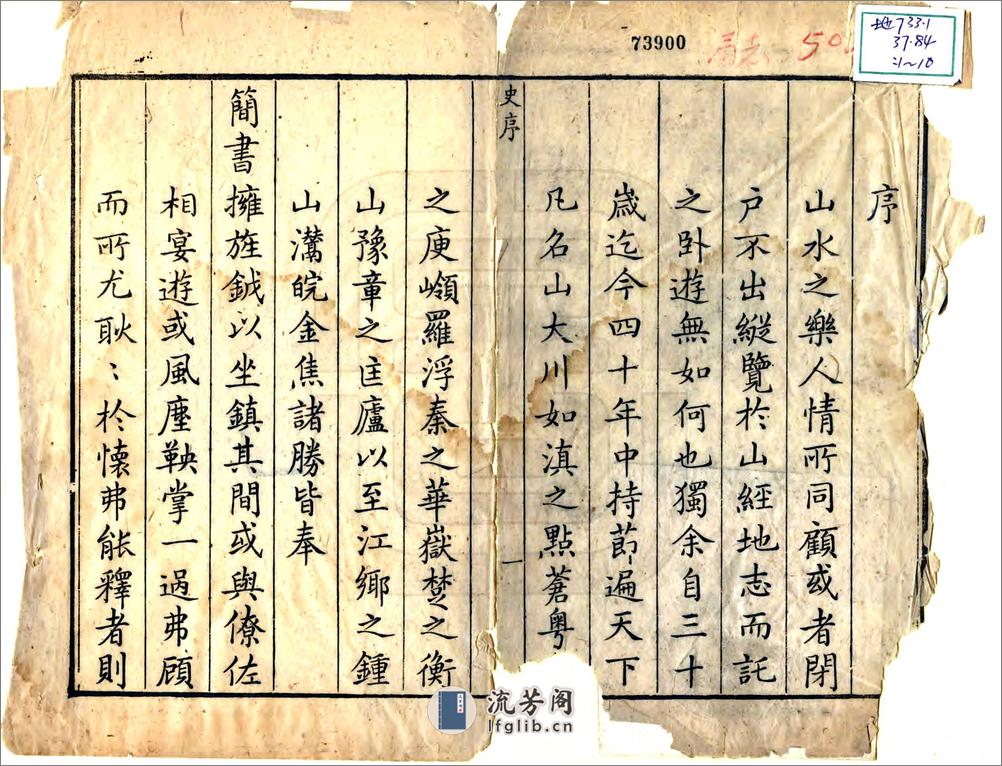 序
山水之樂人情所同顧或者閉
戸不出縱覽於山經地志而託
之卧遊無如何也獨余自三十
歳迄今四十年中持莭遍天下
凡名山大川如滇之點蒼粤
史序
一
之庾嶺羅浮秦之華嶽楚之衡
山豫章之匡廬以至江鄉之鍾
山灊皖金焦諸勝皆奉
簡書擁旌鉞以坐鎮其間或與僚佐
相宴遊或風塵鞅掌一過弗顧
而所尤耿〻於懐弗能釋者則
73900
50
地733.1
37.84
:1~10
流芳阁
lfglib.cn